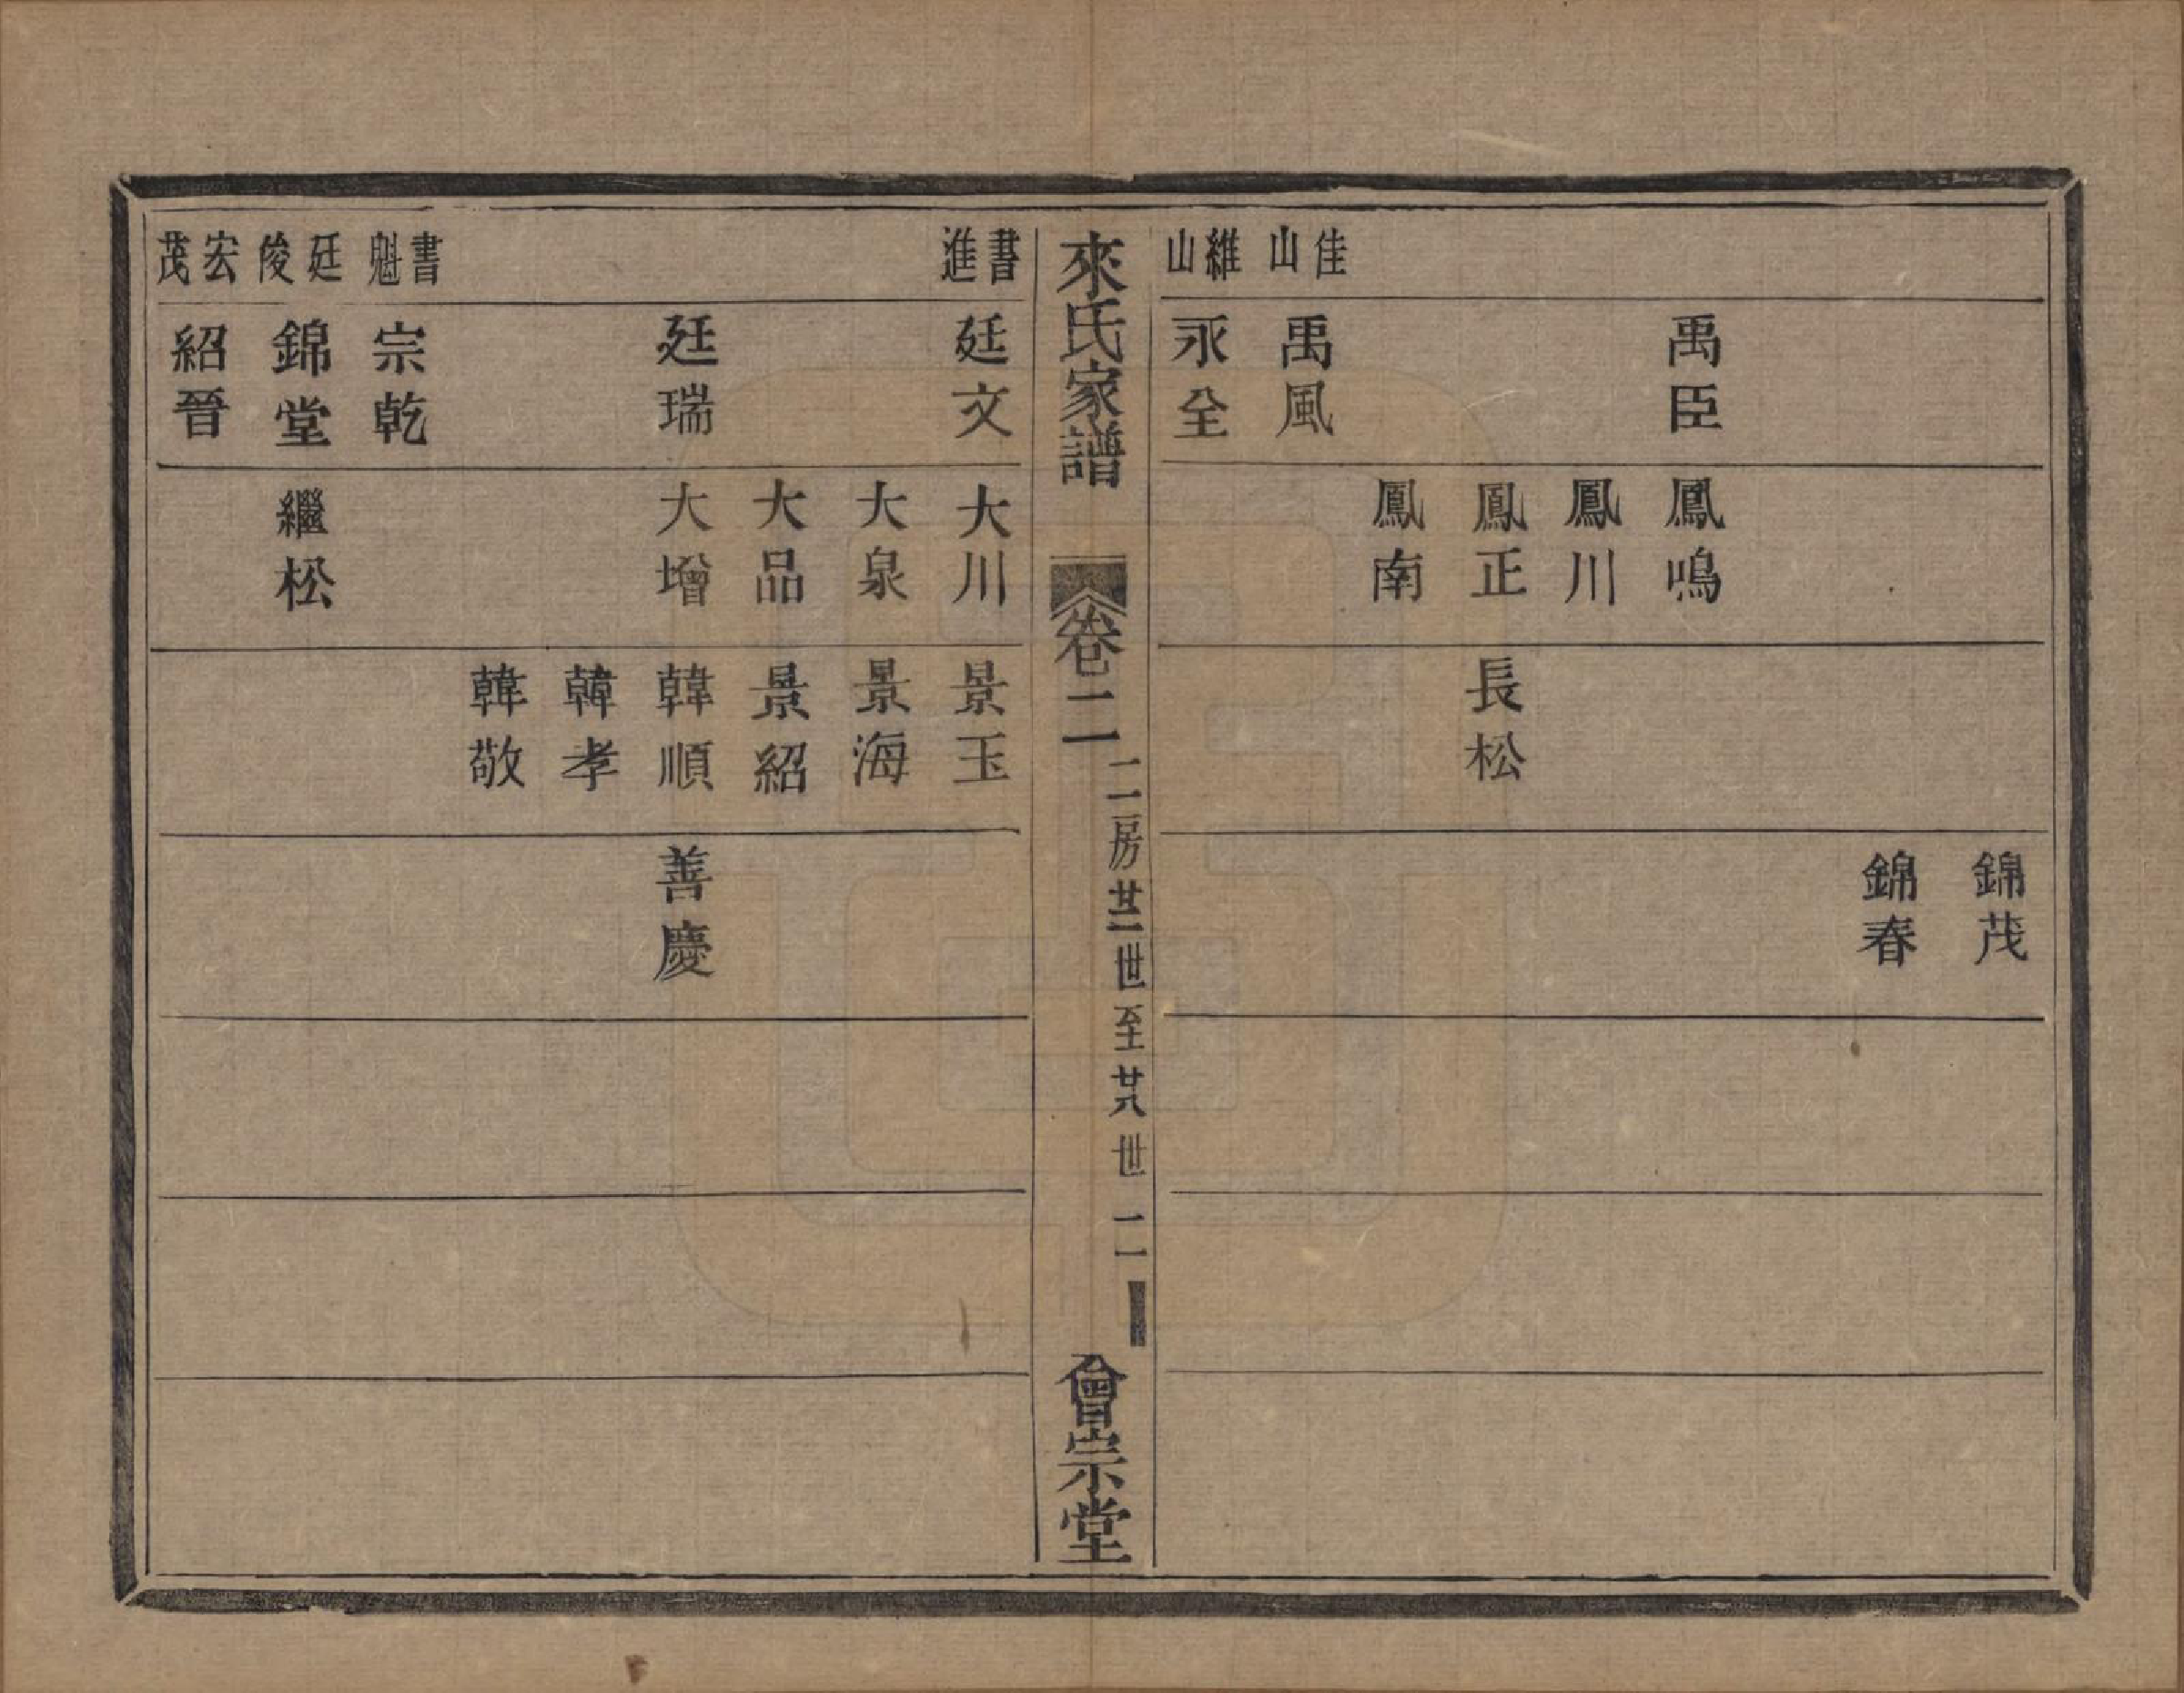 佳山
維山
禹臣
禹風
永全
鳳鳴
鳳川
鳳正
鳳南
長松
錦茂
錦春
來氏家譜
卷二
二房廿二世至廿八世
二
會宗堂
書進
書魁
廷俊
宏茂
廷文
廷瑞
宗乾
錦堂
紹晉
大川
大泉
大品
大增
繼松
景玉
景海
景紹
韓順
韓孝
韓敬
善慶